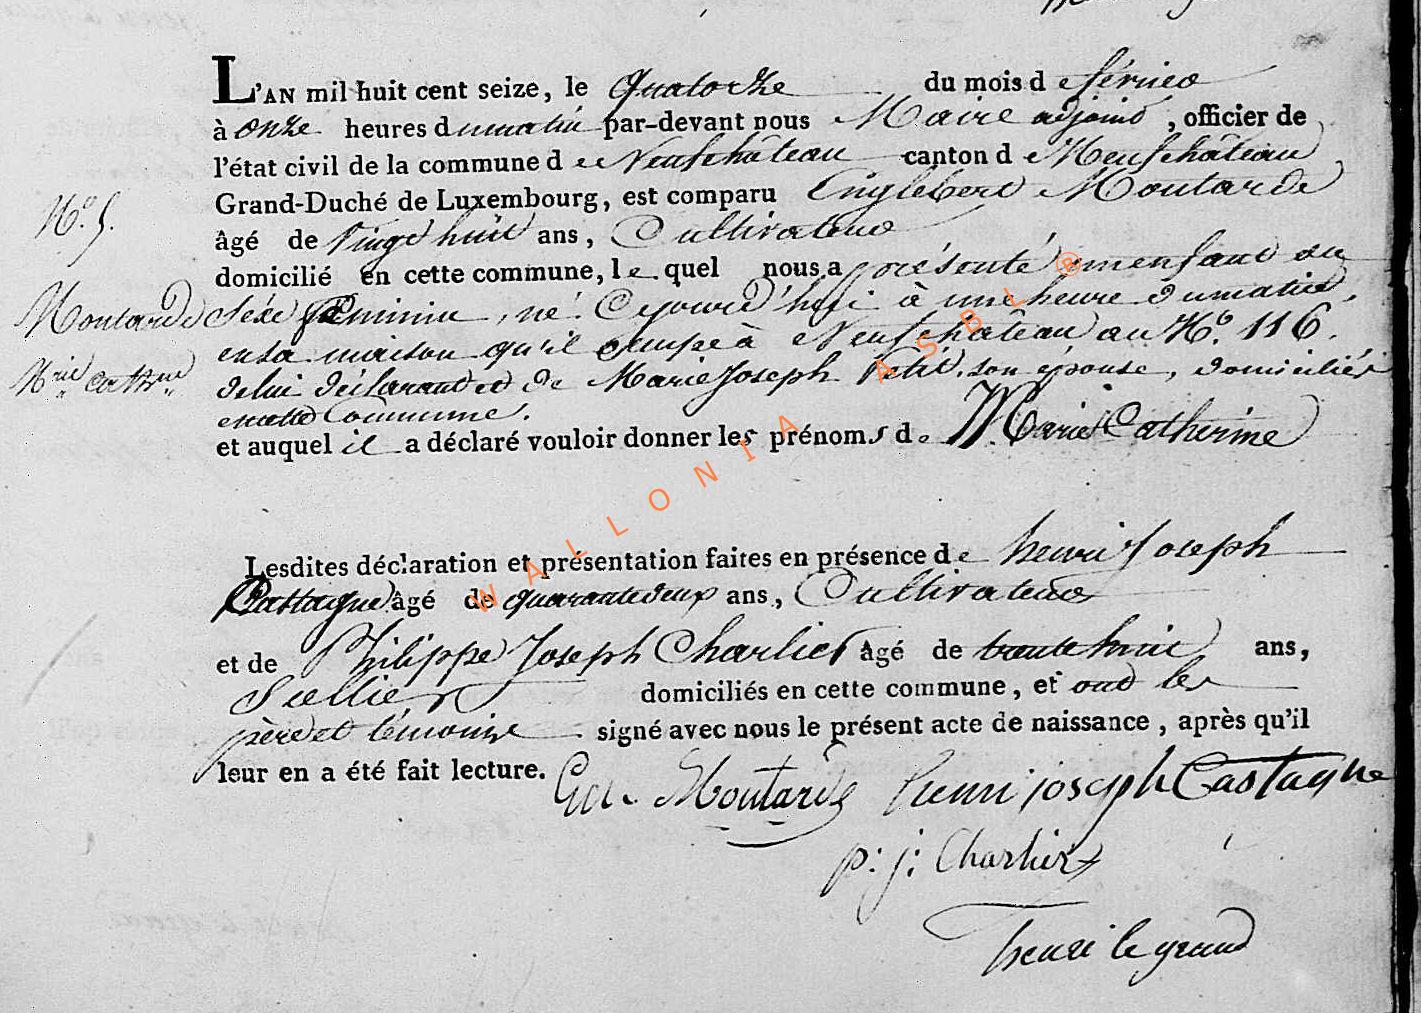 L'AN mil huit cent seize, le quatorze du mois de février
à onze heures du matin par-devant nous Maire adjoint, officier de
l'état civil de la commune de Neufchâteau canton de Neufchâteau,
Grand-Duché de Luxembourg, est comparu Englebert Moutarde
N.º 5.
âgé de vingt huit ans, Cultivateur
domicilié en cette commune, lequel nous a présenté un enfant du
Moutarde
sexe féminin, né Cejourd'hui à une heure du matin,
en sa maison qu'il occupe à Neufchâteau au Nº. 116.
Mrie Cathne
de lui déclarant et de Marie Joseph Petit son épouse, domiciliés
en cette Commune.
et auquel il a déclaré vouloir donner les prénoms de Marie Catherine
Lesdites déclaration et présentation faites en présence de henri Joseph
Castagne âgé de quarante deux ans, Cultivateur
et de Philippe Joseph Charlier âgé de trente huit ans,
Sellier domiciliés en cette commune, et ont les
père et témoins signé avec nous le présent acte de naissance, après qu'il
leur en a été fait lecture.
Moutarde henri joseph Castagne
p: j: Charlier
henri le grand
WALLONIA ASBL ®